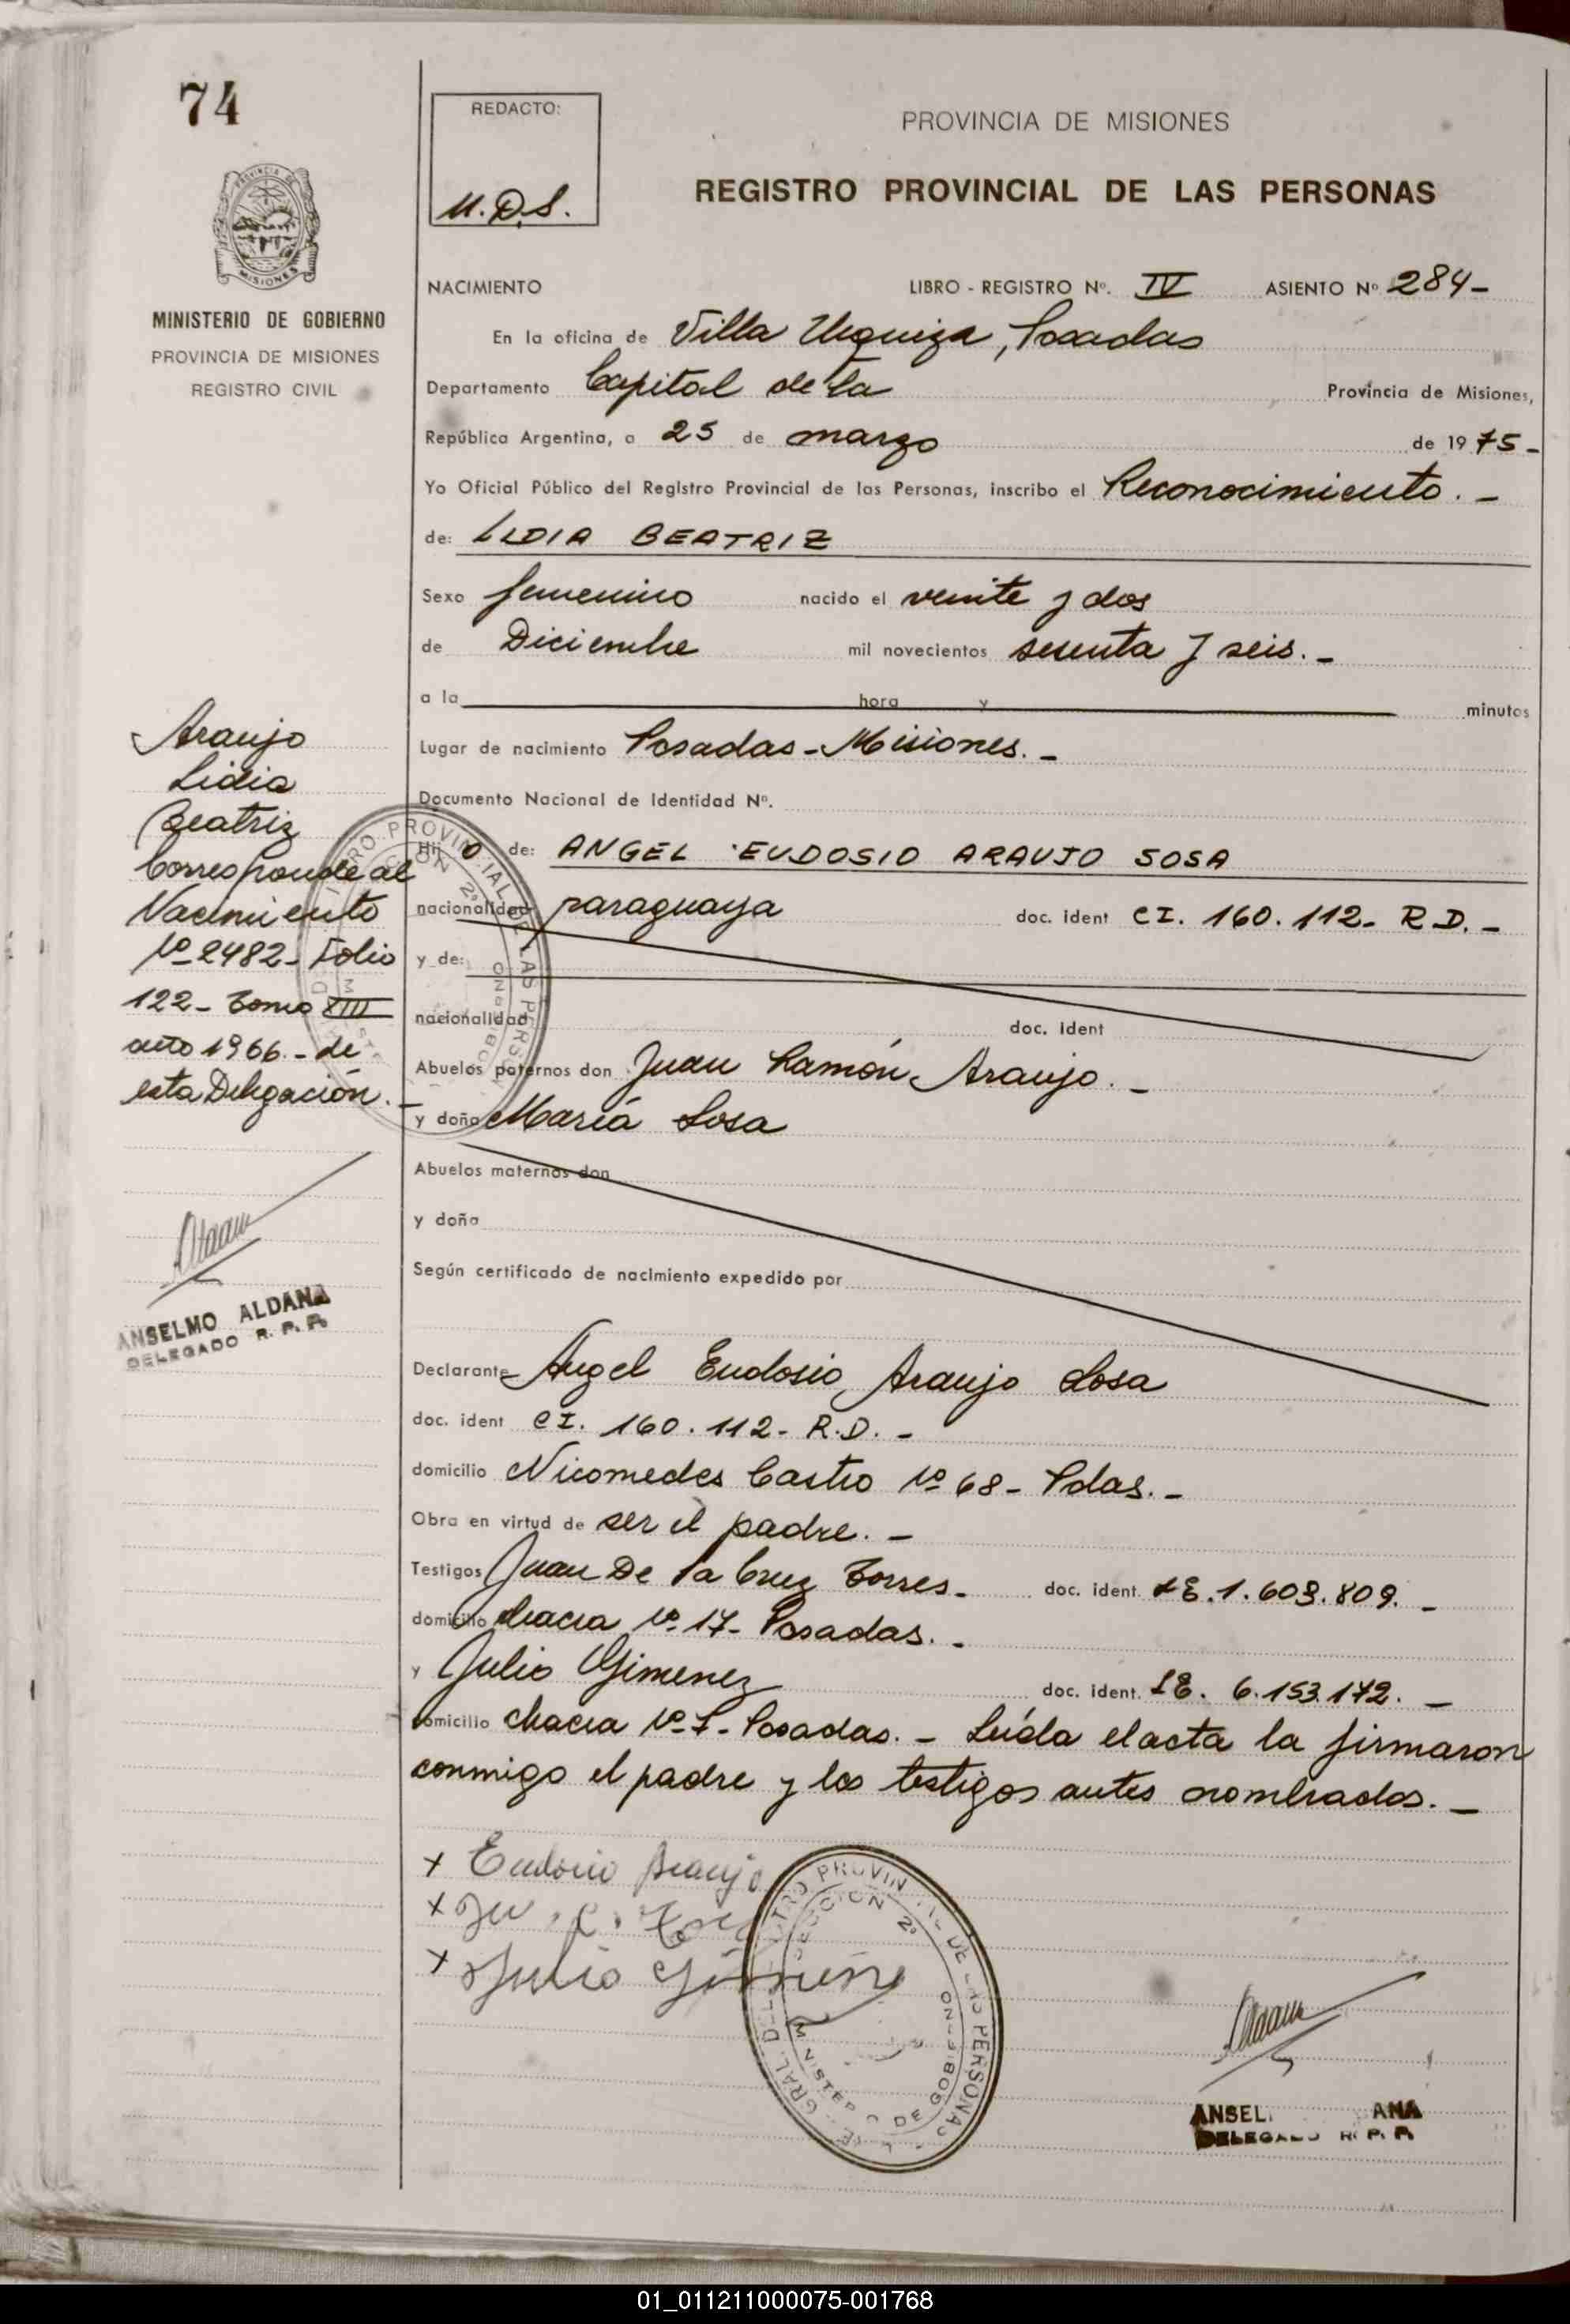 74
REDACTO:
M.D.S.
PROVINCIA DE MISIONES
REGISTRO PROVINCIAL DE LAS PERSONAS
MISIONES
MINISTERIO DE GOBIERNO
PROVINCIA DE MISIONES
REGISTRO CIVIL
NACIMIENTO LIBRO - REGISTRO Nº. IV ASIENTO Nº 284-
En la oficina de Villa Urquiza, Posadas
Departamento Capital de la Provincia de Misiones,
República Argentina, a 25 de marzo de 1975-
Yo Oficial Público del Registro Provincial de las Personas, inscribo el Reconocimiento.-
de: LIDIA BEATRIZ
Sexo femenino nacido el veinte y dos
de Diciembre mil novecientos sesenta y seis.-
a la hora y minutos
Lugar de nacimiento Posadas-Misiones.-
Documento Nacional de Identidad Nº.
Hijo de: ANGEL EUDOSIO ARAUJO SOSA
nacionalidad paraguaya doc. ident CI. 160.112- R.D.-
y de:
nacionalidad doc. ident
Abuelos paternos don Juan Ramón Araujo.-
y doña María Sosa
Abuelos maternos don
y doña
Según certificado de nacimiento expedido por
Declarante Angel Eudosio Araujo Sosa
doc. ident CI. 160.112- R.D.-
domicilio Nicomedes Castro Nº 68- Pdas.-
Obra en virtud de ser el padre.-
Testigos Juan De la Cruz Torres- doc. ident. LE.1.603.809.-
domicilio chacra Nº 17- Posadas.-
y Julio Gimenez doc. ident. LE. 6.153.172.-
domicilio chacra Posadas.- Leída el acta la firmaron
conmigo el padre y los testigos antes nombrados.-
x Eudosio Araujo
x
x Julio Gimenez
Araujo
Lidia
Beatriz
Corresponde al
Nacimiento
Nº 2482- Folio
122- Tomo XIII
año 1966.- de
esta Delegación.-
ANSELMO ALDANA
DELEGADO R. P. P.
REGISTRO PROVINCIAL DE LAS PERSONAS
SECCION 2ª
MINISTERIO DE GOBIERNO
ANSEL ANA
DELEGADO R. P. P.
01_011211000075-001768